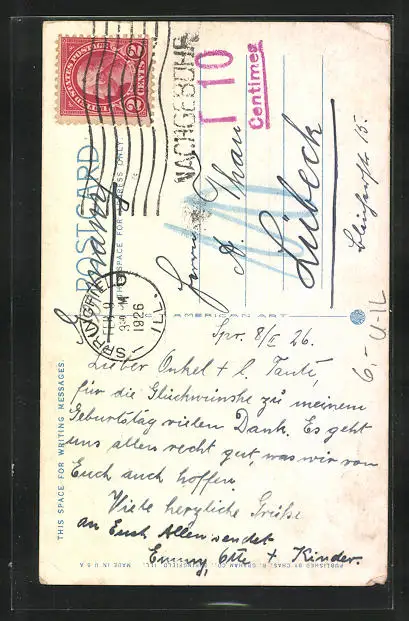 UNITED STATES POSTAGE
2 CENTS 2
NACHGEBÜHR
T 10
Centimes
POSTCARD
THIS SPACE FOR ADDRESS ONLY
Germany
SPRINGFIELD
FEB 9
3 PM
1926
ILL.
Herrn
A. Thau
Lübeck
15.
AMERICAN ART
6.- U-IL
THIS SPACE FOR WRITING MESSAGES
Spr. 8/II 26.
Lieber Onkel + l. Tante,
für die Glückwünshe zu meinem
Geburtstag vielen Dank. Es geht
uns allen recht gut, was wir von
Euch auch hoffen
Viele herzliche Grüße
an Euch Allen sendet
Emmy, Otto + Kinder.
PUBLISHED BY CHAS. R. GRAHAM CO., SPRINGFIELD, ILL. MADE IN U S A